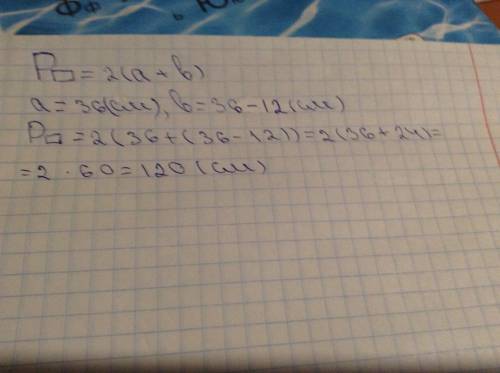 Фф Ю
P▭ = 2(a + b)
a = 36(см), b = 36 - 12 (см)
P▭ = 2(36 + (36 - 12)) = 2(36 + 24) =
= 2 · 60 = 120 (см)